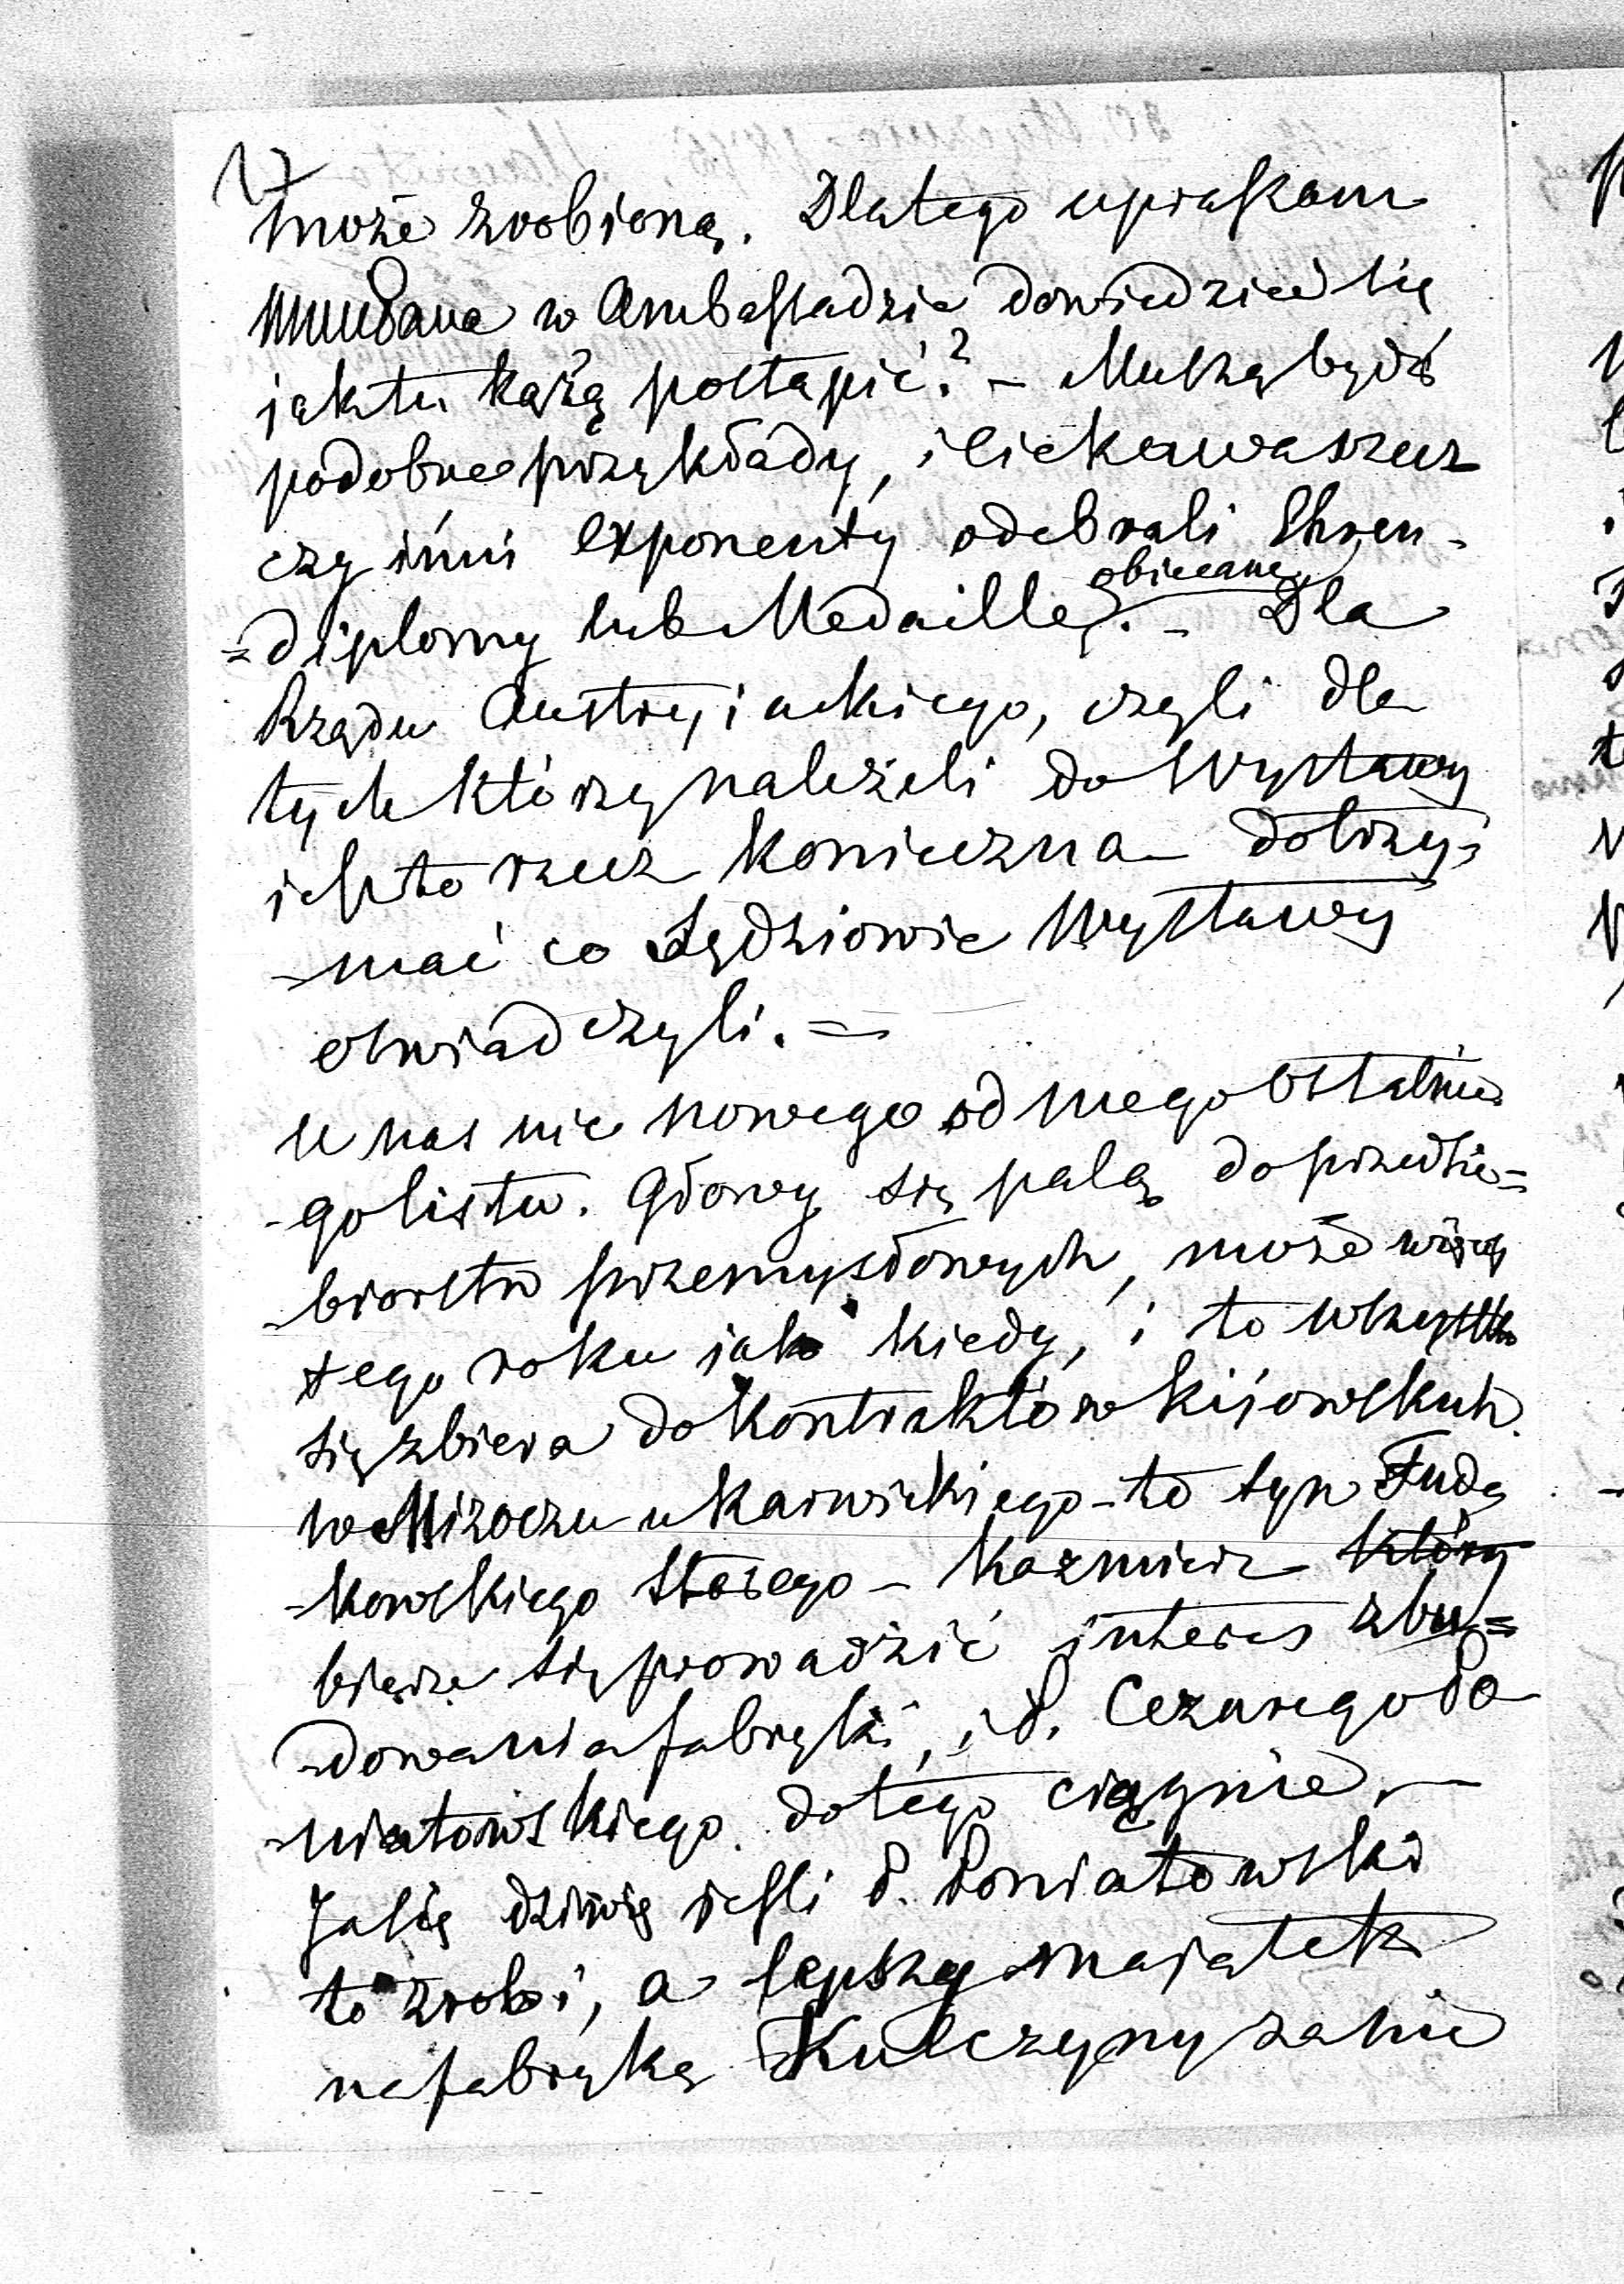 17
może zrobioną. Dlatego upraszam
w Ambassadzie dowiedzieć się
jak tu każą postąpić? – Muszą bydź
podobne przykłady, i ciekawa rzecz
czy inni exponenty odebrali Ehren-
obiecane
=diplomy lub Medaille. – Dla
Rządu Austryiackiego, czyli dla
tych którzy należeli do Wystawy
jest to rzecz konieczna dotrzy-
-mać co Sędziowie Wystawy
oświadczyli. =
U nas nic nowego od mego ostatnie
-go listu. Głowy się palą do przedsie=
-biorstw przemysłowych, może więcej
tego roku jak kiedy, i to wszystko
się zbiera do Kontraktów Kijowskich.
w Mizoczu u Karwickiego – to syn Fuda
-kowskiego starego – Kazmierz który
bierze się prowadzić interes zbu=
-dowania fabryki, i P. Cezarego Po
-niatowskiego do tego ciągnie. –
Ja się dziwię jeśli P. Poniatowski
to zrobi, a lepszy majątek
na fabrykę Kulczyny za nie